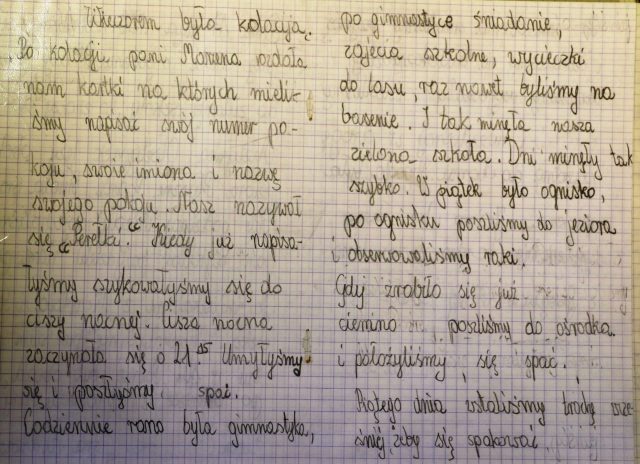 Wieczorem była kolacja.
Po kolacji pani Marzena rozdała
nam kartki na których mieli-
śmy napisać swój numer po-
koju, swoje imiona i nazwę
swojego pokoju. Nasz nazywał
się "Perełki". Kiedy już napisa-
łyśmy szykowałyśmy się do
ciszy nocnej. Cisza nocna
zaczynała się o 21. Umyłyśmy
się i poszłyśmy spać.
Codziennie rano była gimnastyka,
po gimnastyce śniadanie,
zajęcia szkolne, wycieczki
do lasu, raz nawet byliśmy na
basenie. I tak minęła nasza
zielona szkoła. Dni minęły tak
szybko. W piątek było ognisko,
po ognisku poszliśmy do jeziora
i obserwowaliśmy raki.
Gdy zrobiło się już
ciemno poszliśmy do ośrodka
i położyliśmy się spać.
Piątego dnia wstaliśmy trochę wcze
śniej żeby się spakować.